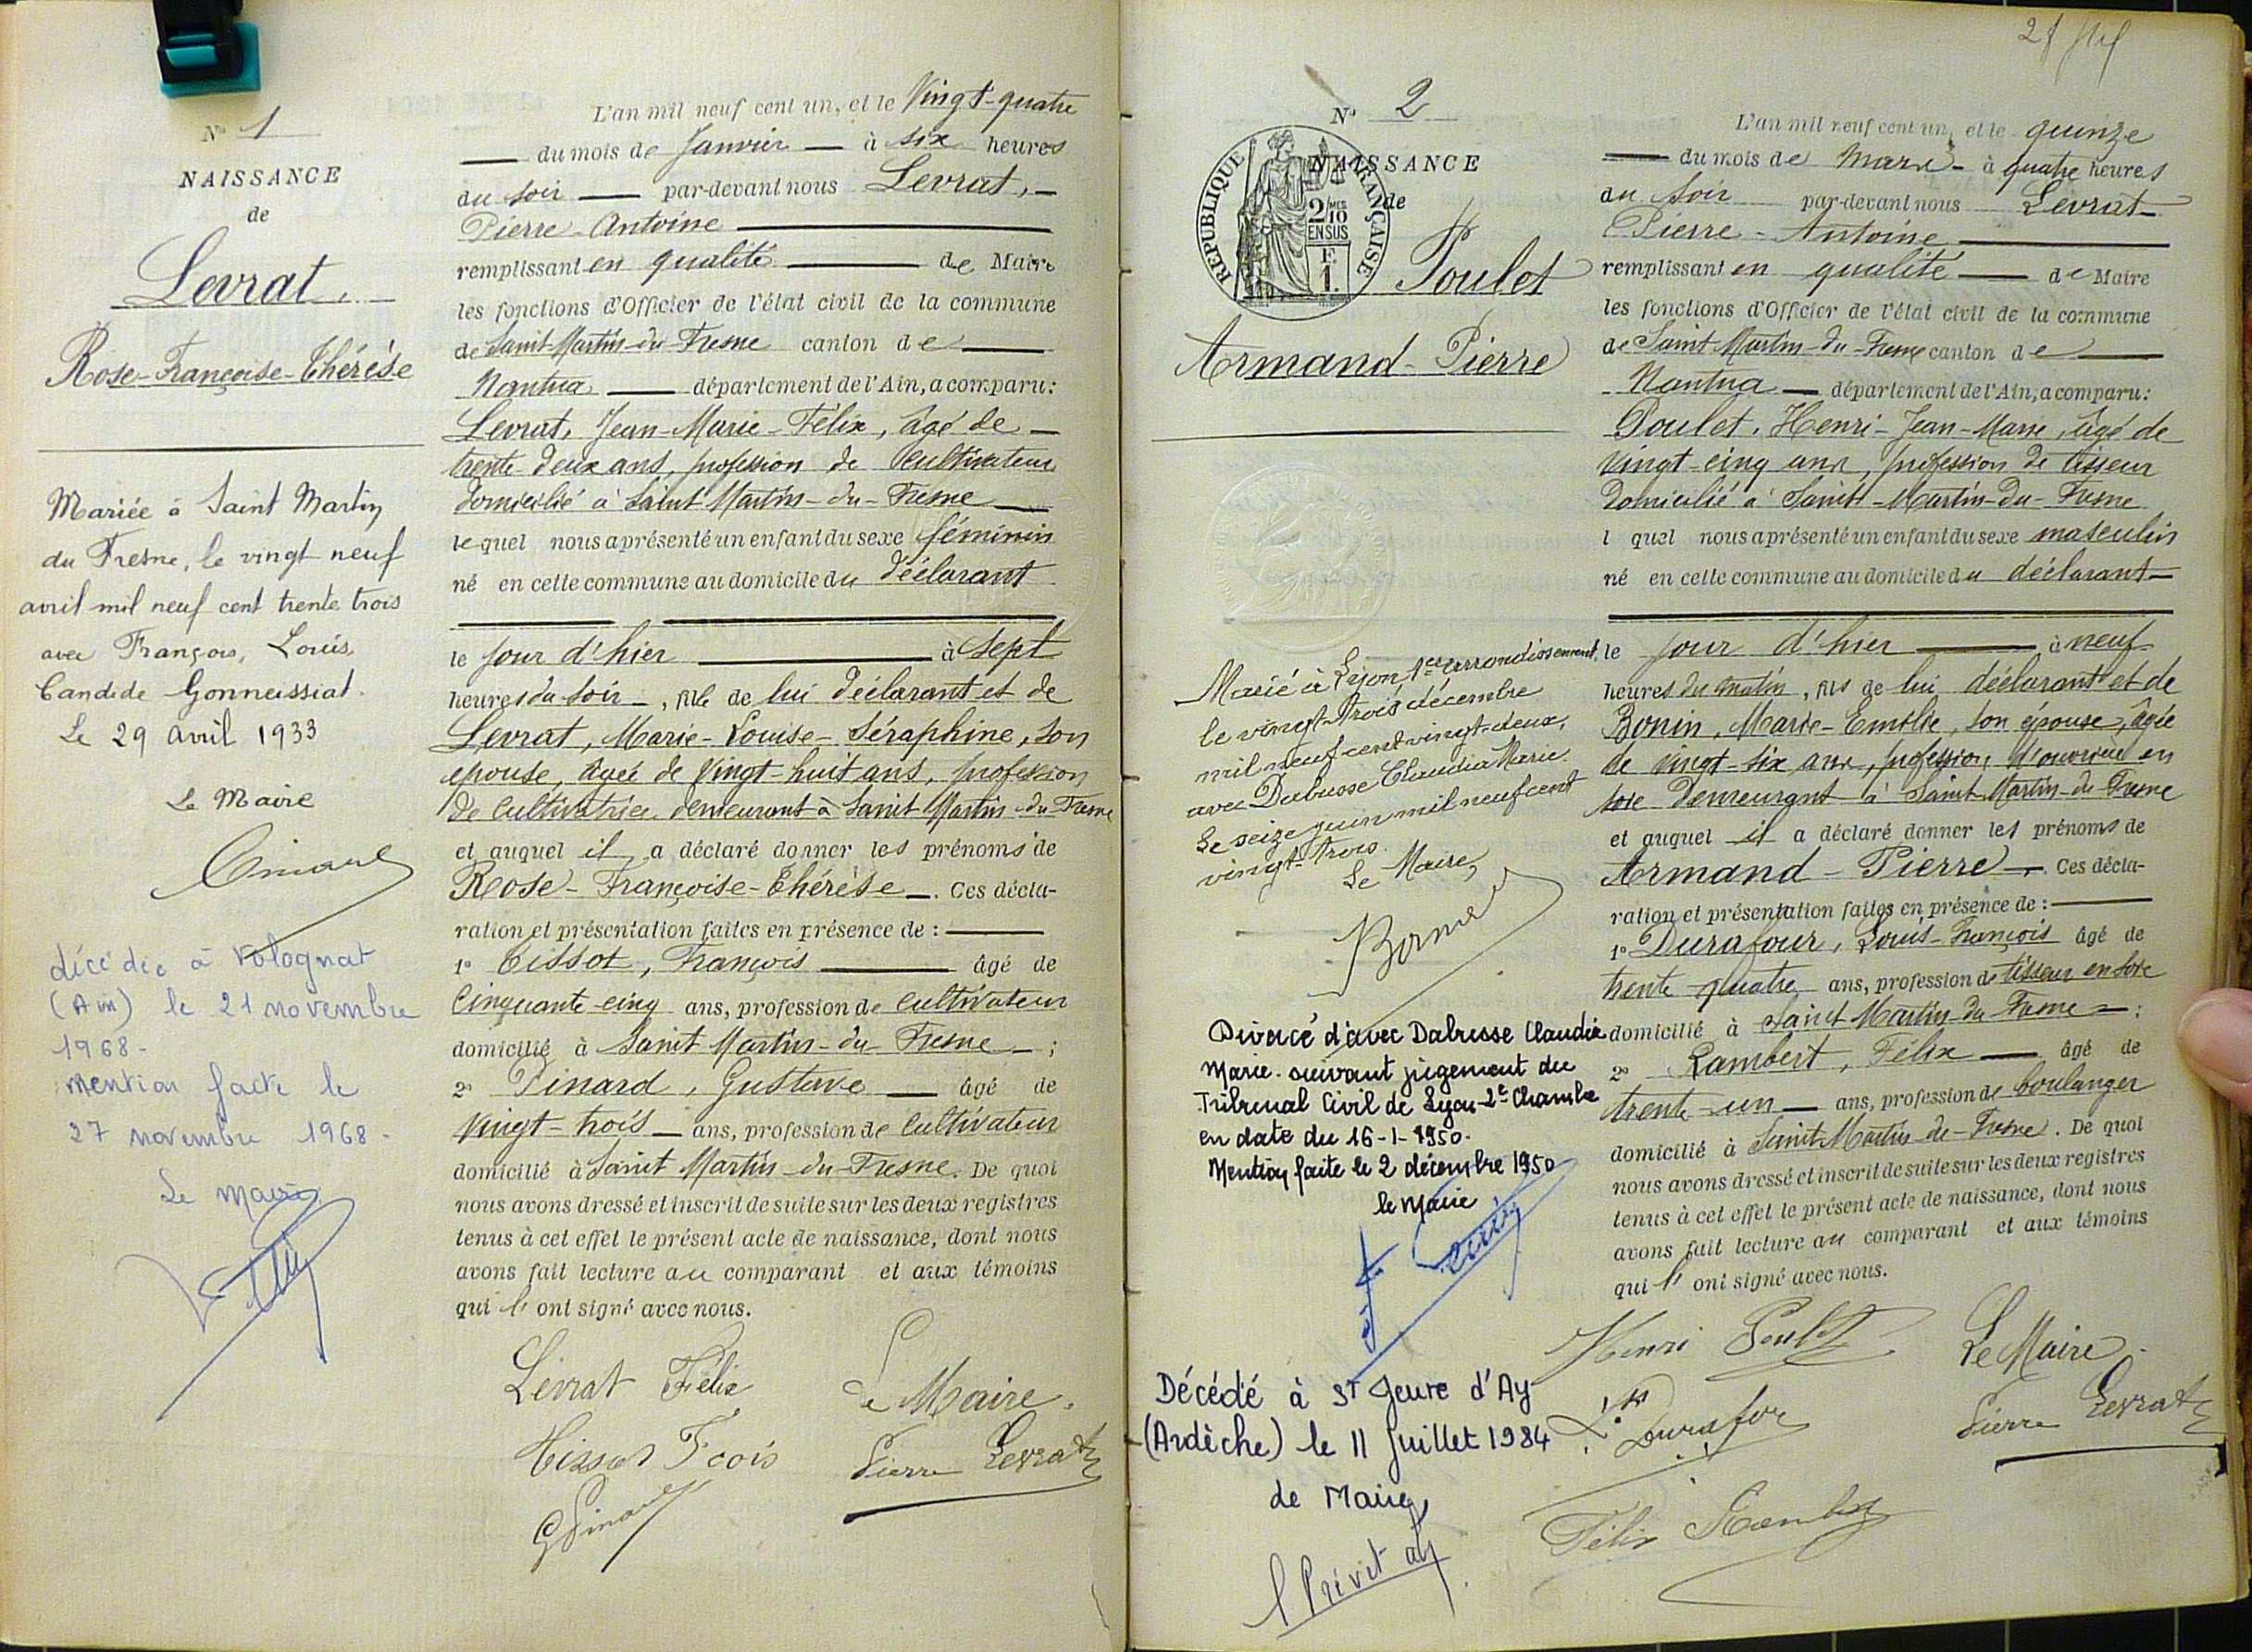 N° 1
NAISSANCE
de
Levrat
Rose-Françoise-Thérèse
Mariée à Saint Martin
du Fresne, le vingt neuf
avril mil neuf cent trente trois
avec François, Louis,
Candide Gonnessiat.
Le 29 avril 1933
Le Maire
décédée à Volognat
(Ain) le 21 novembre
1968-
Mention faite le
27 novembre 1968-
Le maire
L'an mil neuf cent un, et le Vingt-quatre
du mois de Janvier à six heures
du soir par-devant nous Levrat,
Pierre-Antoine
remplissant en qualité de Maire
les fonctions d'Officier de l'état civil de la commune
de Saint-Martin-du-Fresne canton de
Nantua département de l'Ain, a comparu:
Levrat, Jean-Marie-Félix, âgé de
trente-deux ans, profession de Cultivateur
domicilié à Saint Martin-du-Fresne
lequel nous a présenté un enfant du sexe féminin
né en cette commune au domicile du déclarant
le jour d'hier à Sept
heures du soir, fille de lui déclarant et de
Levrat, Marie-Louise-Séraphine, son
épouse, âgée de Vingt-huit ans, profession
de Cultivatrice demeurant à Saint Martin-du-Fresne
et auquel il a déclaré donner les prénoms de
Rose-Françoise-Thérèse. Ces décla-
ration et présentation faites en présence de :
1° Tissot, François âgé de
Cinquante-cinq ans, profession de Cultivateur
domicilié à Saint Martin-du-Fresne ;
2° Pinard, Gustave âgé de
Vingt-trois ans, profession de Cultivateur
domicilié à Saint Martin-du-Fresne. De quoi
nous avons dressé et inscrit de suite sur les deux registres
tenus à cet effet le présent acte de naissance, dont nous
avons fait lecture au comparant et aux témoins
qui l'ont signé avec nous.
Levrat Félix
Le Maire.
Tissot Fcois
Pierre Levrat
G Pinard
N° 2
NAISSANCE
de
REPUBLIQUE FRANÇAISE
2/10 MES
EN SUS
F.
1.
Poulet
Armand-Pierre
Marié à Lyon 1er arrondissement,
le vingt-trois décembre
mil neuf cent vingt-deux,
avec Dabusse Claudia Marie.
Le seize juin mil neuf cent
vingt-trois.
Le Maire,
Divorcé d'avec Dabusse Claudia
Marie suivant jugement du
Tribunal Civil de Lyon 2e Chambre
en date du 16-1-1950.
Mention faite le 2 décembre 1950
le Maire
Décédé à St Jeure d'Ay
(Ardèche) le 11 Juillet 1984
de Maire
L'an mil neuf cent un, et le quinze
du mois de Mars à quatre heures
du Soir par-devant nous Levrat
Pierre-Antoine
remplissant en qualité de Maire
les fonctions d'Officier de l'état civil de la commune
de Saint Martin-du-Fresne canton de
Nantua département de l'Ain, a comparu:
Poulet, Henri-Jean-Marie, âgé de
Vingt-cinq ans, profession de tisseur
domicilié à Saint-Martin-du-Fresne
lequel nous a présenté un enfant du sexe masculin
né en cette commune au domicile du déclarant
le jour d'hier à neuf
heures du matin, fils de lui déclarant et de
Bonin, Marie-Emélie, son épouse, âgée
de vingt-six ans, profession d'ouvrière en
soie demeurant à Saint-Martin-du-Fresne
et auquel il a déclaré donner les prénoms de
Armand-Pierre. Ces décla-
ration et présentation faites en présence de :
1° Durafour, Louis-François âgé de
trente-quatre ans, profession de tisseur en soie
domicilié à Saint Martin-du-Fresne ;
2° Lambert, Félix âgé de
trente-un ans, profession de boulanger
domicilié à Saint-Martin-du-Fresne. De quoi
nous avons dressé et inscrit de suite sur les deux registres
tenus à cet effet le présent acte de naissance, dont nous
avons fait lecture au comparant et aux témoins
qui l'ont signé avec nous.
Henri Poulet
Le Maire
Ls Durafour
Pierre Levrat
Félix Lambert